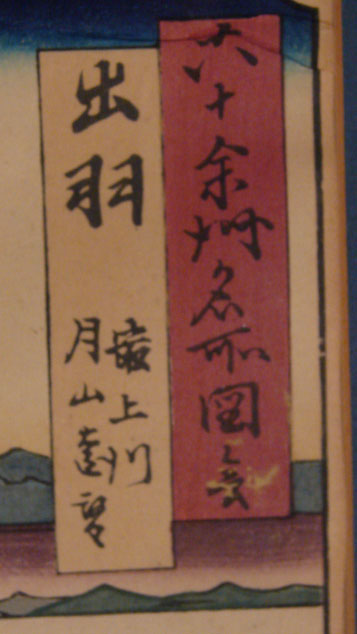 六十余州名所図会
出羽
最上川
月山遠望